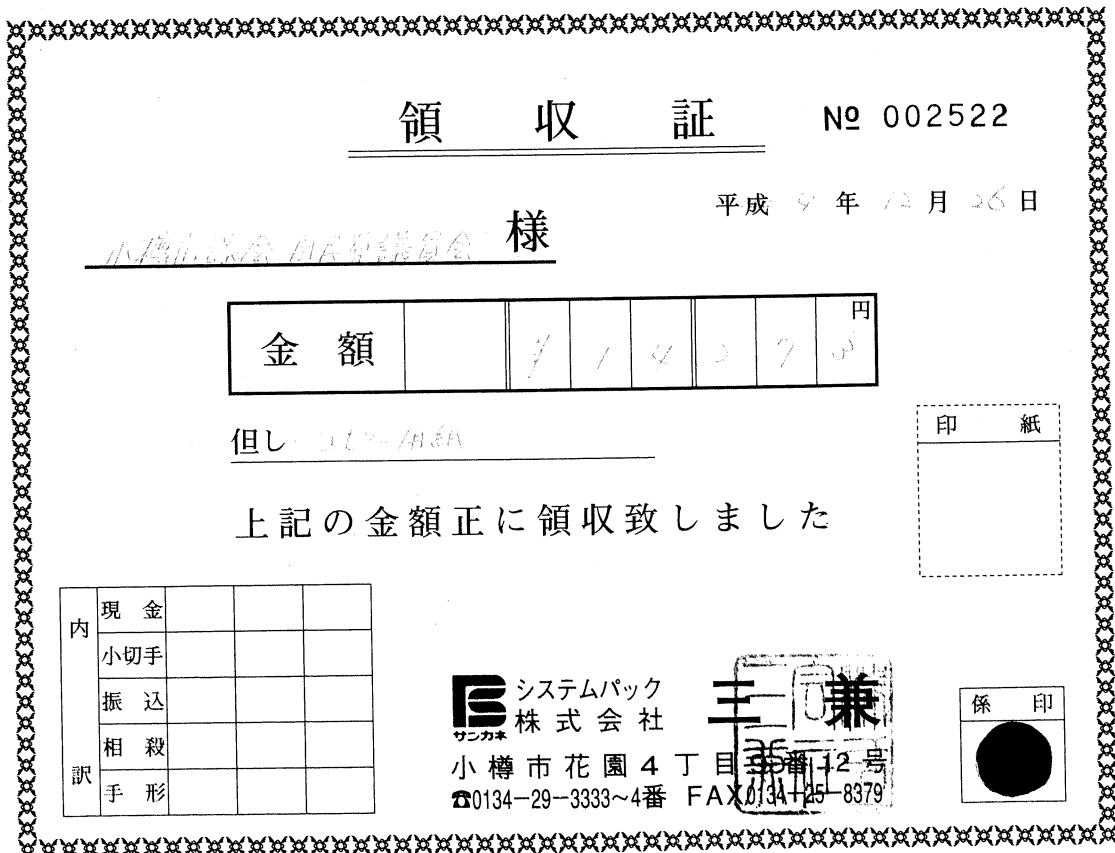 領収証 № 002522
平成 年 12月 26日
小樽市議会 自民党議員会 様
金額 ¥14273 円
但し コピー用紙
上記の金額正に領収致しました
印紙
内訳
現金
小切手
振込
相殺
手形
サンカネ
システムパック
株式会社 三兼
小樽市花園4丁目 番12号
☎0134-29-3333~4番 FAX0134-25-8379
係印